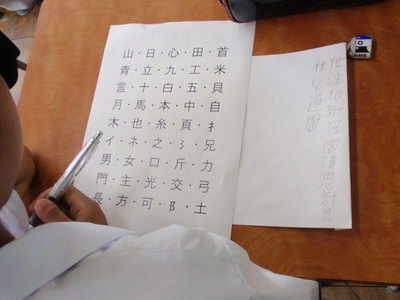 山・日・心・田・首
青・立・九・工・米
言・十・白・五・貝
月・馬・本・中・自
木・也・糸・頁・扌
イ・ネ・之・氵・兄
男・女・口・斤・力
門・主・光・交・弓
長・方・可・阝・土
他注加新河間清田